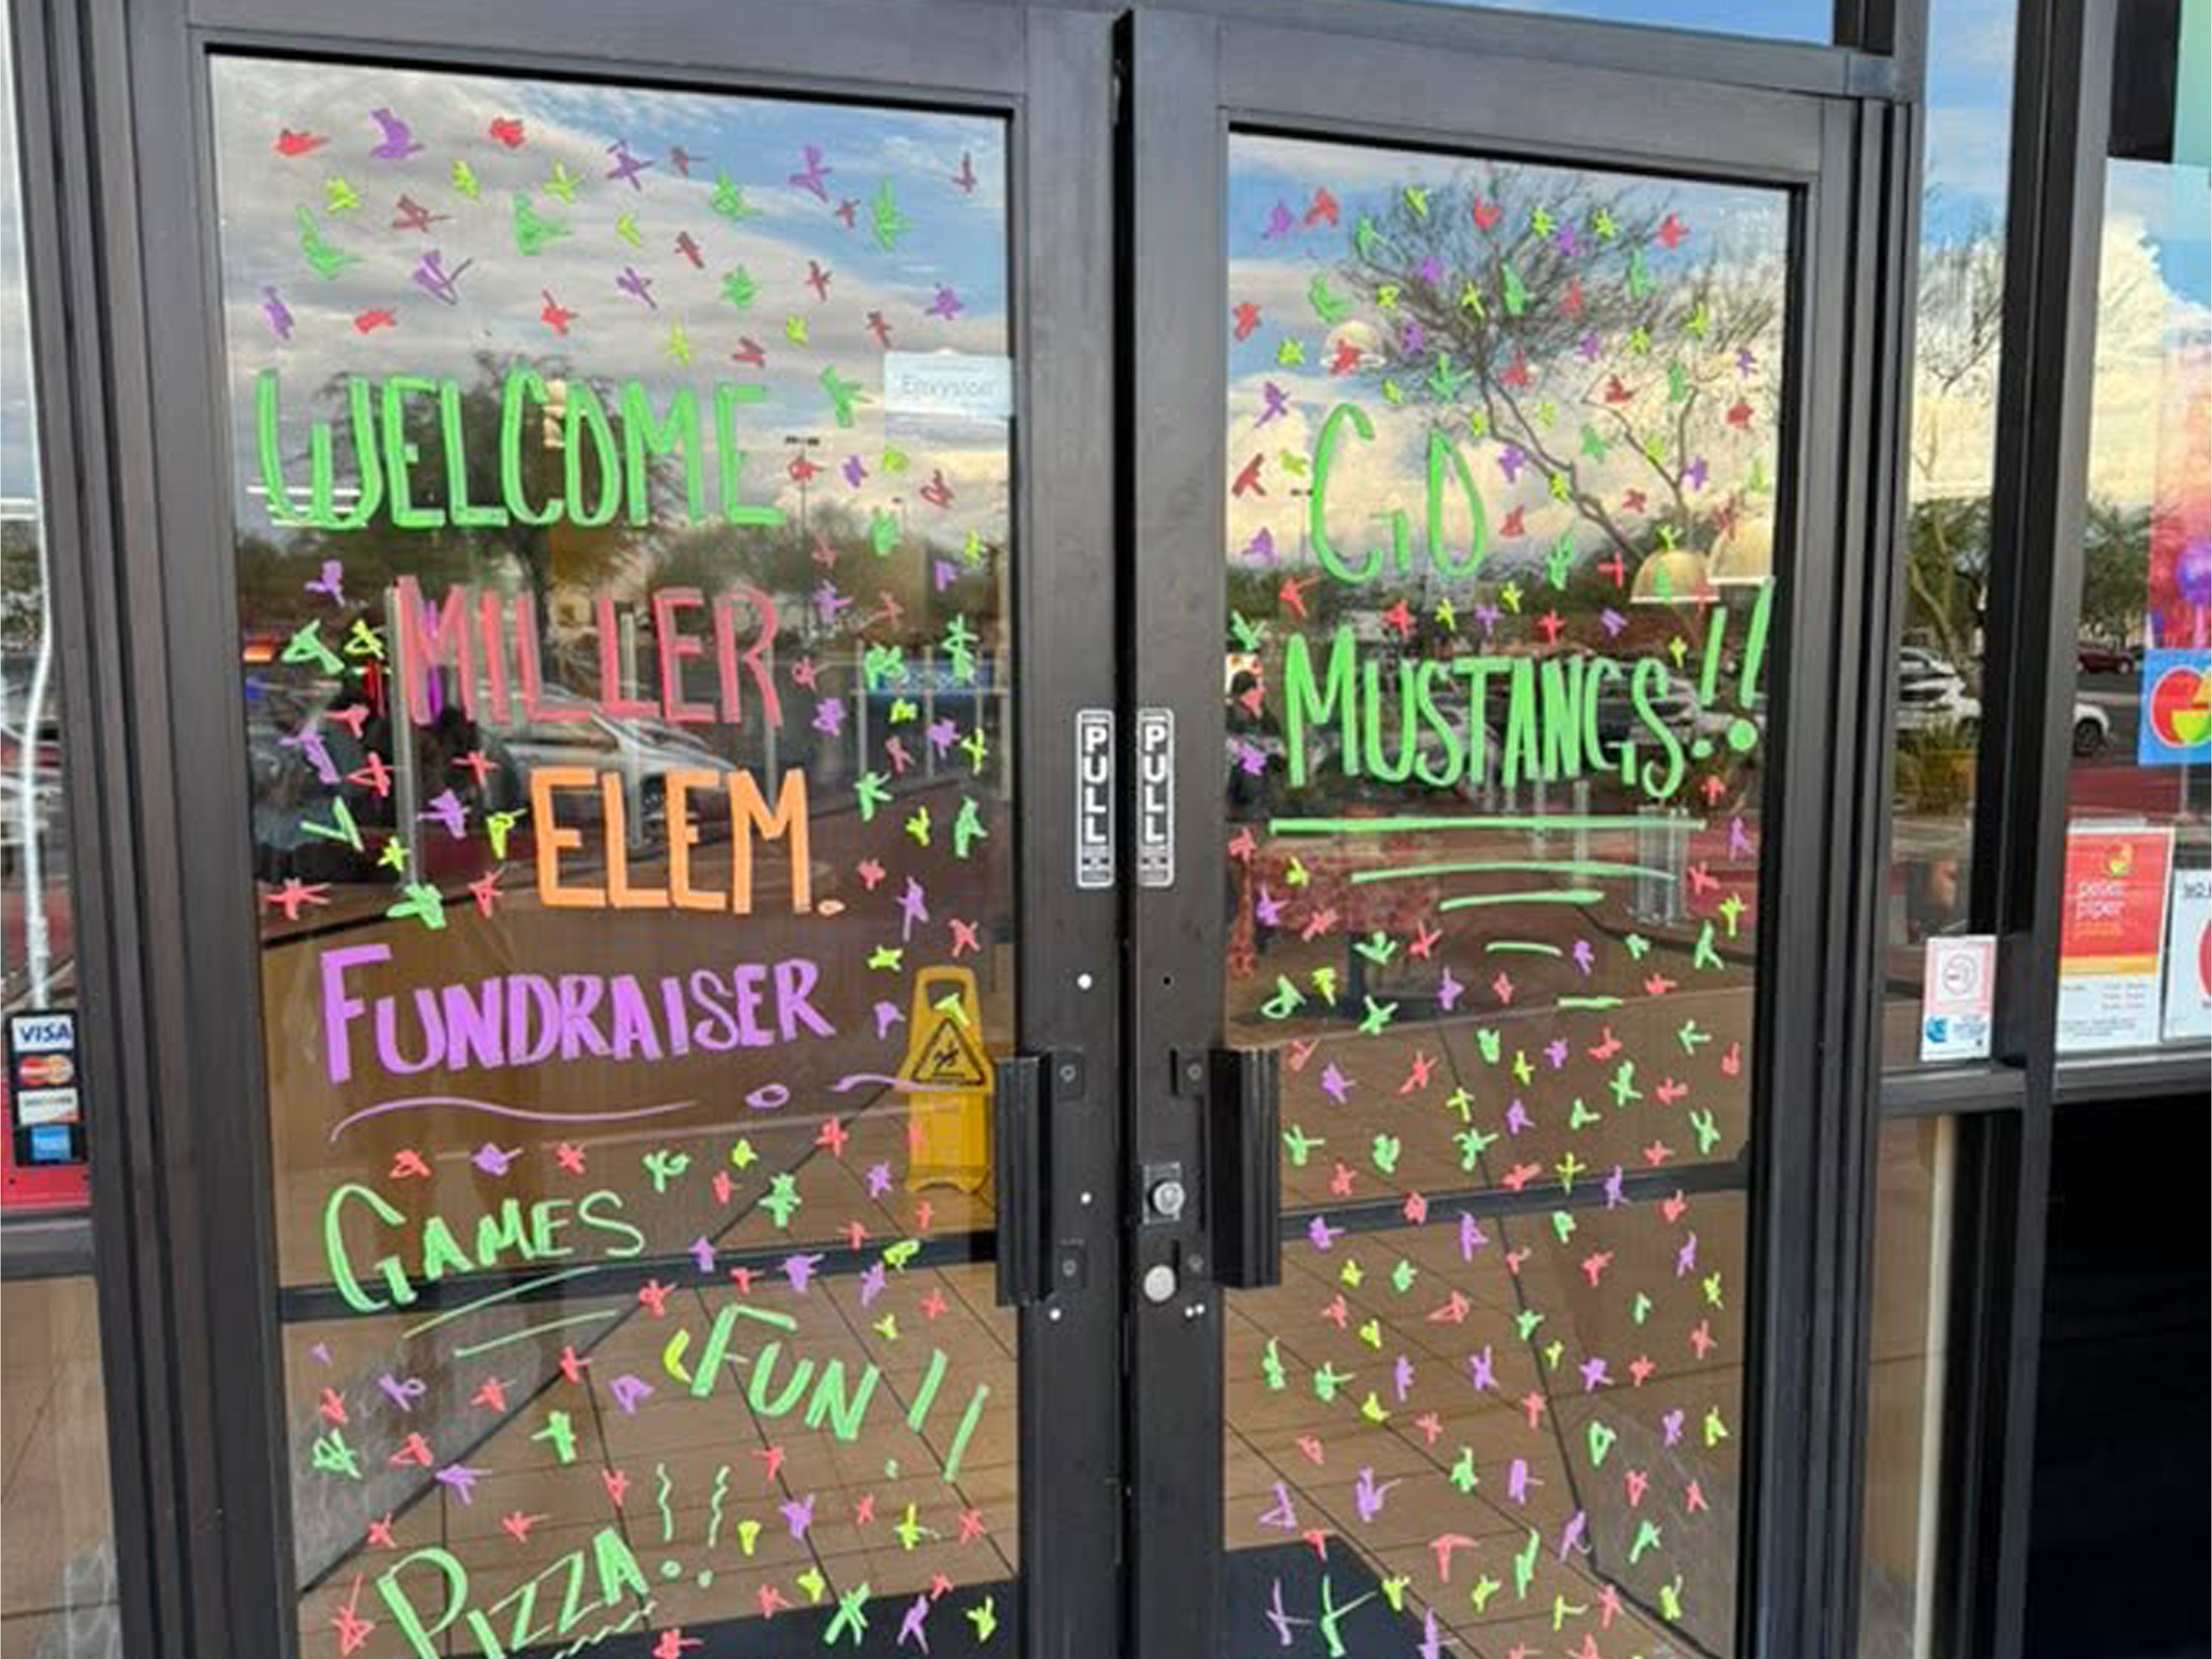 WELCOME
MILLER
ELEM.
FUNDRAISER
GAMES
FUN!!
PIZZA!!
GO
MUSTANGS!!
PULL
PULL
Envysion
VISA
peter
piper